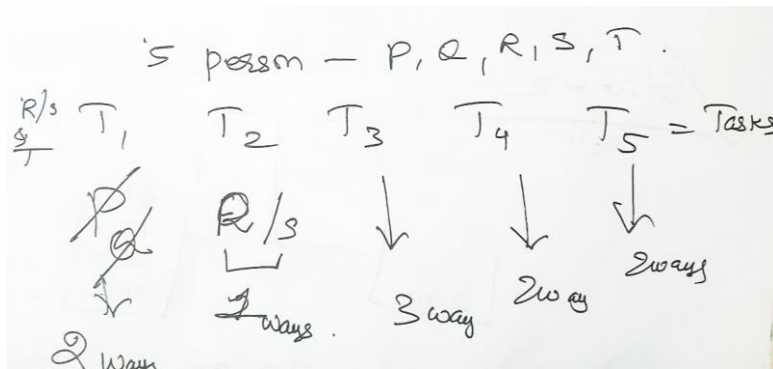 5 person – P, Q, R, S, T.
R/S T1 T2 T3 T4 T5 = Tasks
T
P R/S
Q
2ways
2way
3way
ways.
2 ways